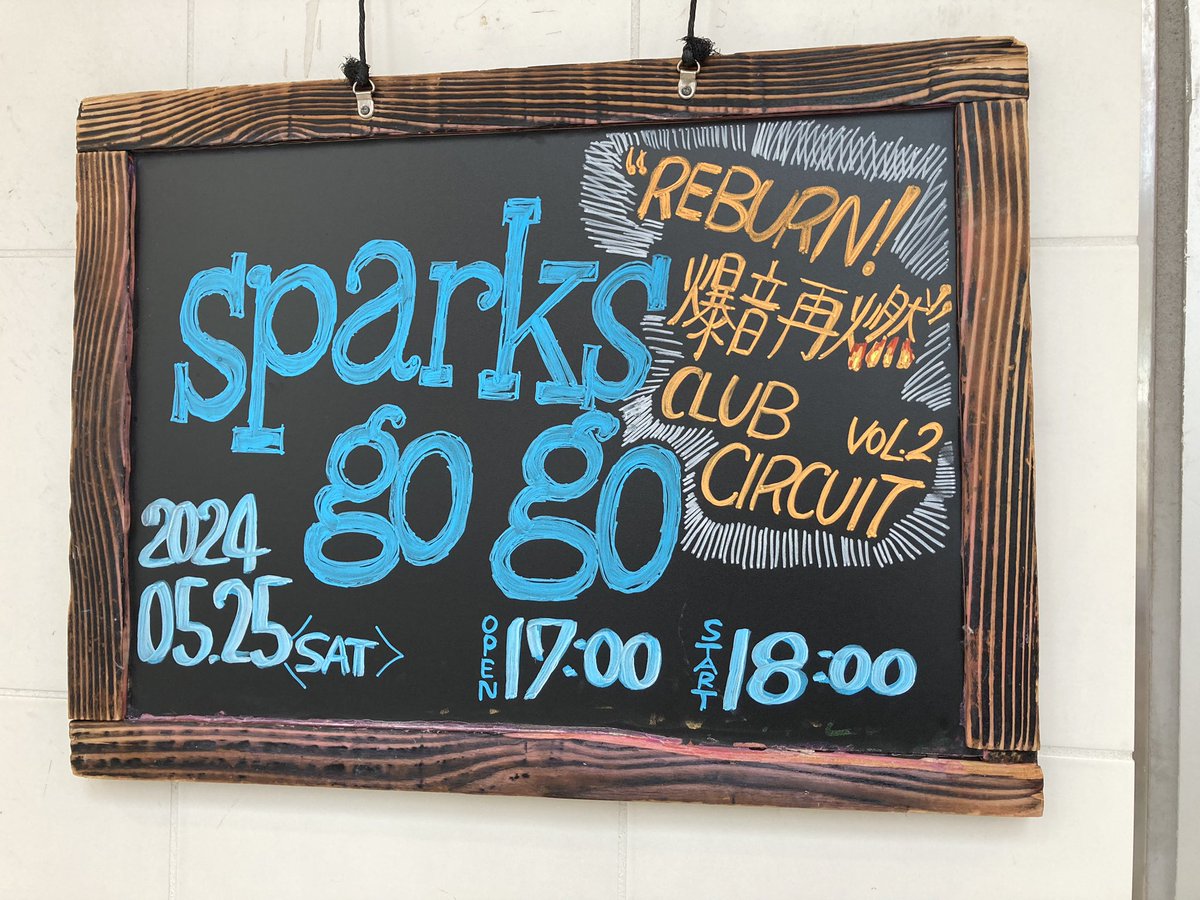 sparks
go go
“REBURN!
爆音再燃”
CLUB
CIRCUIT VOL.2
2024
05.25〈SAT〉
OPEN 17:00 START 18:00